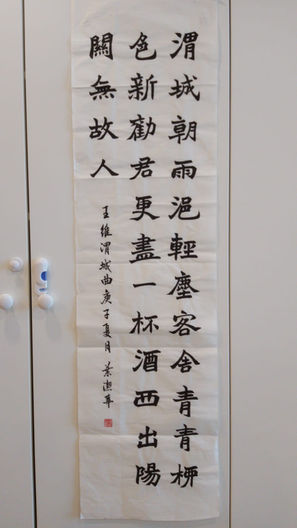 渭城朝雨浥輕塵客舍青青柳
色新勸君更盡一杯酒西出陽
關無故人
王維渭城曲庚子夏月 葉